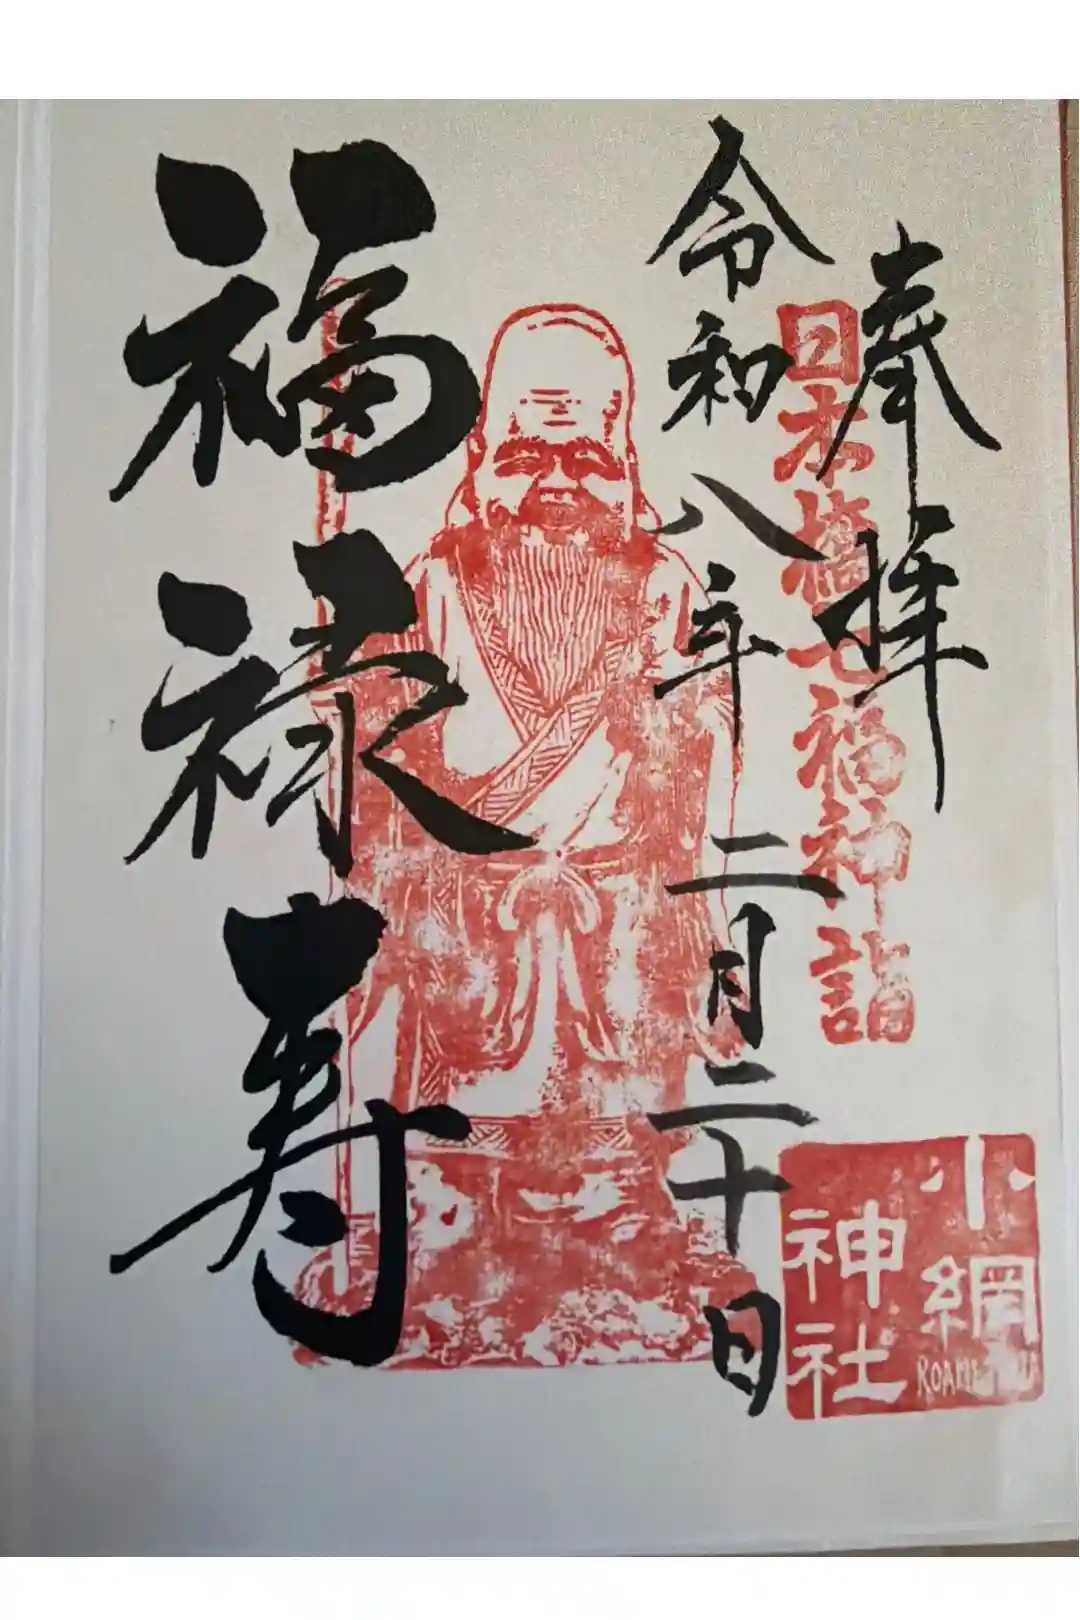 奉拝
日本橋七福神詣
令和八年二月二十日
福禄寿
小網
神社